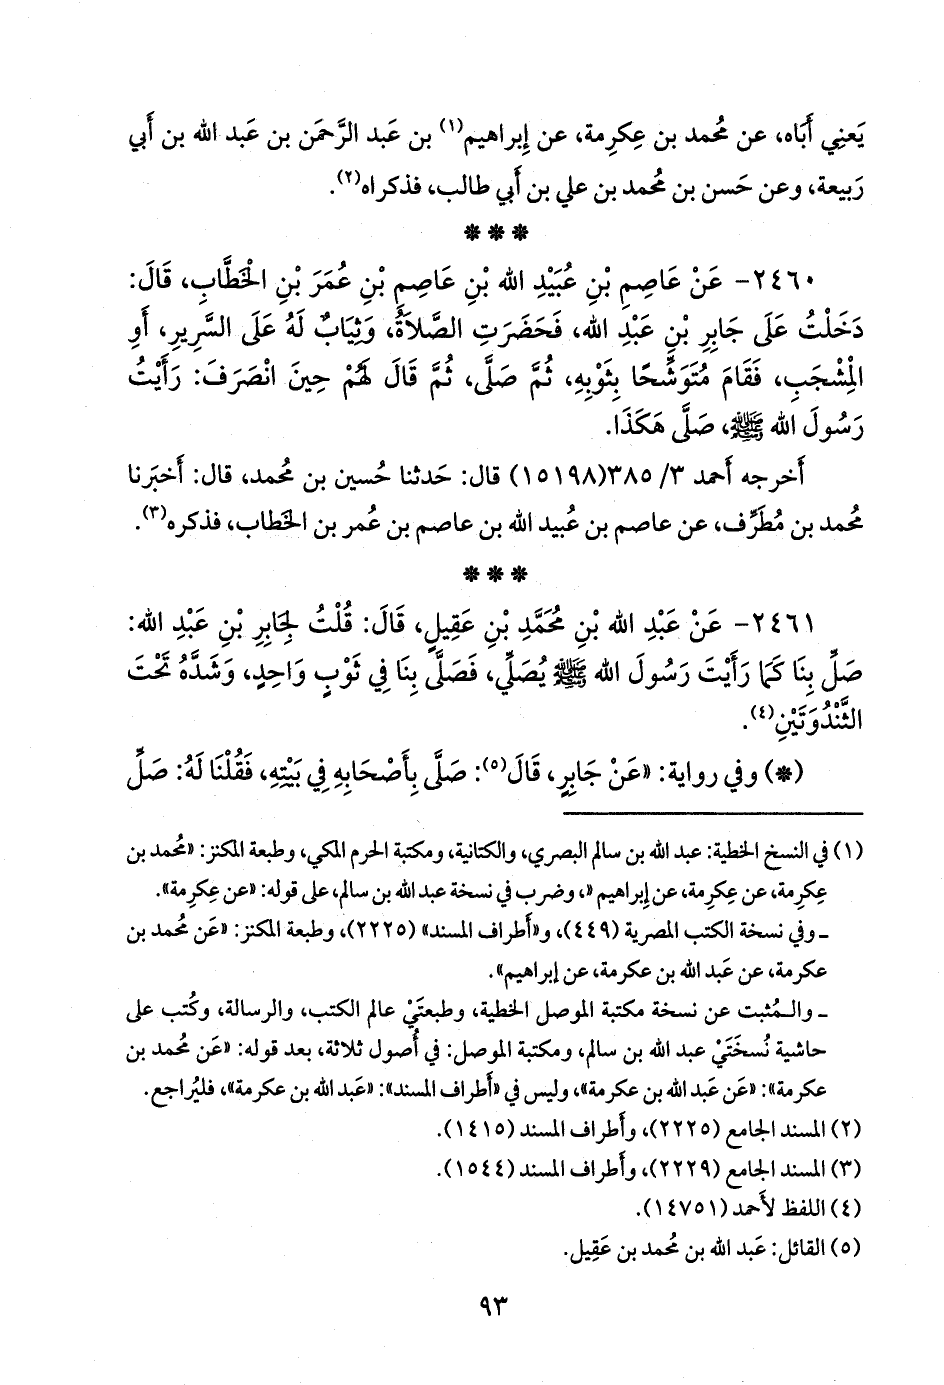 يَعنِي أَبَاه، عن مُحمد بن عِكرِمة، عن إِبراهيم(١) بن عَبد الرَّحمَن بن عَبد الله بن أَبي
رَبيعة، وعن حَسن بن مُحمد بن علي بن أَبي طالب، فذكراه(٢).
* * *
٢٤٦٠- عَنْ عَاصِمِ بْنِ عُبَيْدِ الله بْنِ عَاصِمِ بْنِ عُمَرَ بْنِ الْخَطَّابِ، قَالَ:
دَخَلْتُ عَلَى جَابِرِ بْنِ عَبْدِ الله، فَحَضَرَتِ الصَّلاَةُ، وَثِيَابٌ لَهُ عَلَى السَّرِيرِ، أَوِ
الْمِشْجَبِ، فَقَامَ مُتَوَشِّحًا بِثَوْبِهِ، ثُمَّ صَلَّى، ثُمَّ قَالَ لَهُمْ حِينَ انْصَرَفَ: رَأَيْتُ
رَسُولَ الله ﷺ، صَلَّى هَكَذَا.
أَخرجه أَحمد ٣/ ٣٨٥(١٥١٩٨) قال: حَدثنا حُسين بن مُحمد، قال: أَخبَرنا
مُحمد بن مُطَرِّف، عن عاصم بن عُبيد الله بن عاصم بن عُمر بن الخطاب، فذكره(٣).
* * *
٢٤٦١- عَنْ عَبْدِ الله بْنِ مُحَمَّدِ بْنِ عَقِيلٍ، قَالَ: قُلْتُ لِجَابِرِ بْنِ عَبْدِ الله:
صَلِّ بِنَا كَمَا رَأَيْتَ رَسُولَ الله ﷺ يُصَلِّي، فَصَلَّى بِنَا فِي ثَوْبٍ وَاحِدٍ، وَشَدَّهُ تَحْتَ
الثَّنْدُوَتَيْنِ(٤).
(*) وفي رواية: «عَنْ جَابِرٍ، قَالَ(٥): صَلَّى بِأَصْحَابِهِ فِي بَيْتِهِ، فَقُلْنَا لَهُ: صَلِّ
(١) في النسخ الخطية: عبد الله بن سالم البصري، والكتانية، ومكتبة الحرم المكي، وطبعة المكنز: «مُحمد بن
عِكرِمة، عن عِكرِمة، عن إِبراهيم»، وضرب في نسخة عبد الله بن سالم، على قوله: «عن عِكرِمة».
ـ وفي نسخة الكتب المصرية (٤٤٩)، و«أَطراف المسند» (٢٢٢٥)، وطبعة المكنز: «عَن مُحمد بن
عكرمة، عن عَبد الله بن عكرمة، عن إبراهيم».
ـ والـمُثبت عن نسخة مكتبة الموصل الخطية، وطبعتَيْ عالم الكتب، والرسالة، وكُتب على
حاشية نُسخَتَيْ عبد الله بن سالم، ومكتبة الموصل: في أُصول ثلاثة، بعد قوله: «عَن مُحمد بن
عكرمة»: «عَن عَبد الله بن عكرمة»، وليس في «أَطراف المسند»: «عَبد الله بن عكرمة»، فليُراجع.
(٢) المسند الجامع (٢٢٢٥)، وأَطراف المسند (١٤١٥).
(٣) المسند الجامع (٢٢٢٩)، وأَطراف المسند (١٥٤٤).
(٤) اللفظ لأَحمد (١٤٧٥١).
(٥) القائل: عَبد الله بن مُحمد بن عَقِيل.
٩٣